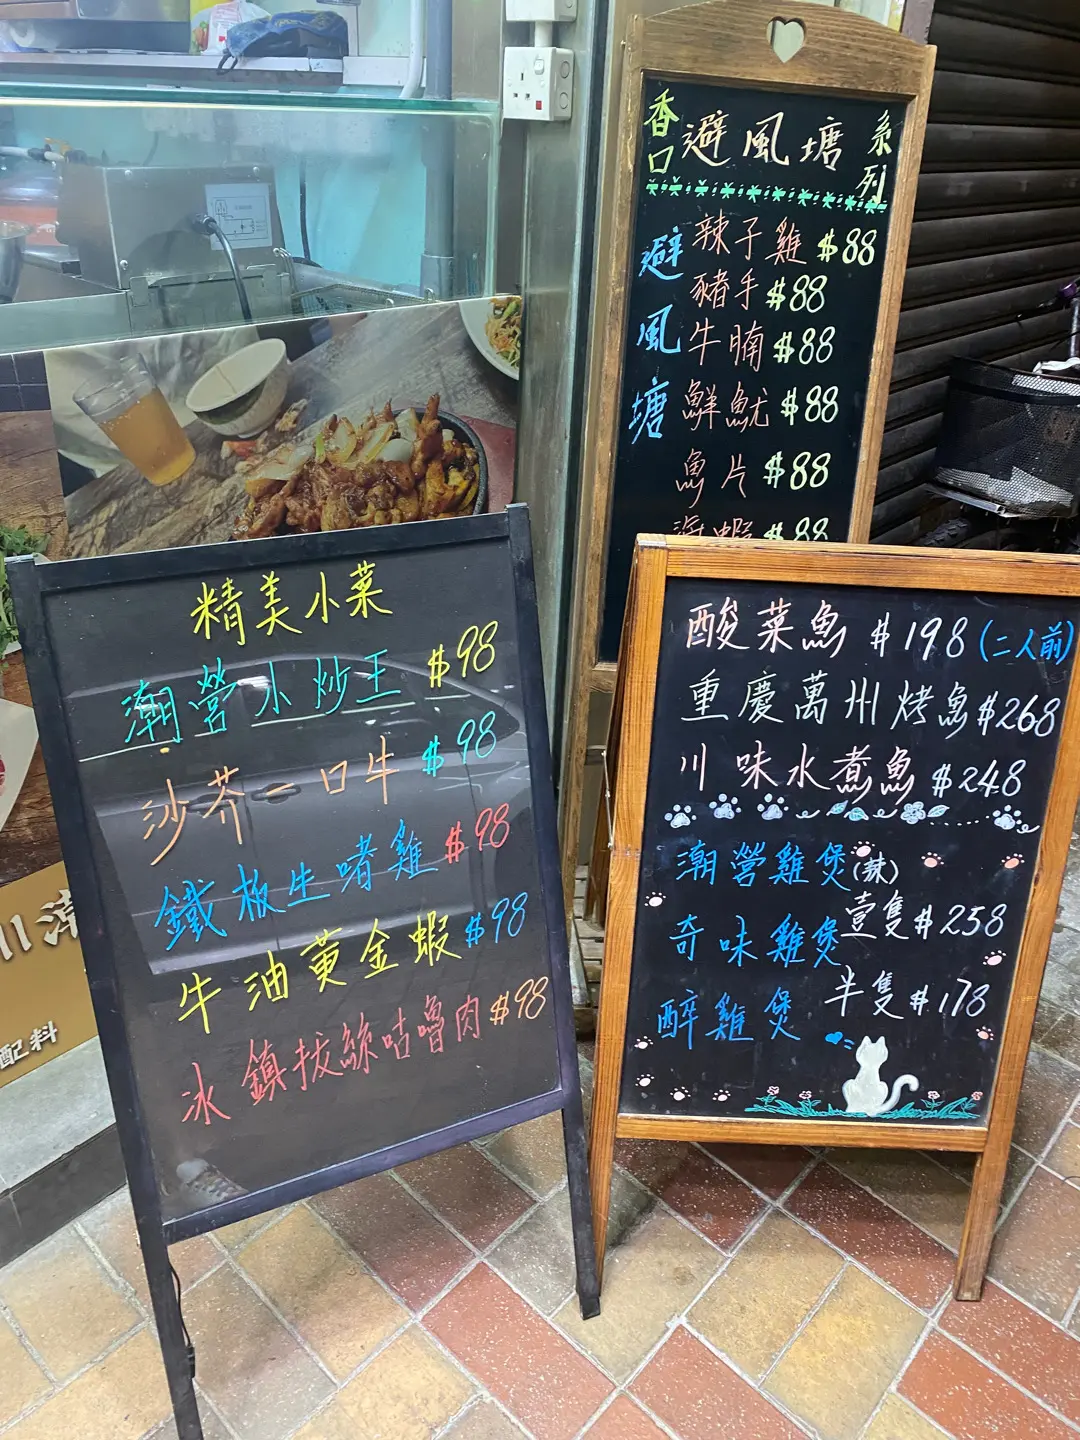 香口 避風塘 系列
避風塘
辣子雞 $88
豬手 $88
牛腩 $88
鮮魷 $88
魚片 $88
海蝦 $88
精美小菜
潮營小炒王 $98
沙芥一口牛 $98
鐵板生啫雞 $98
牛油黃金蝦 $98
冰鎮拔絲咕嚕肉 $98
酸菜魚 $198 (二人前)
重慶萬州烤魚 $268
川味水煮魚 $248
潮營雞煲(辣)
奇味雞煲 壹隻 $258
醉雞煲 半隻 $178
川
配料